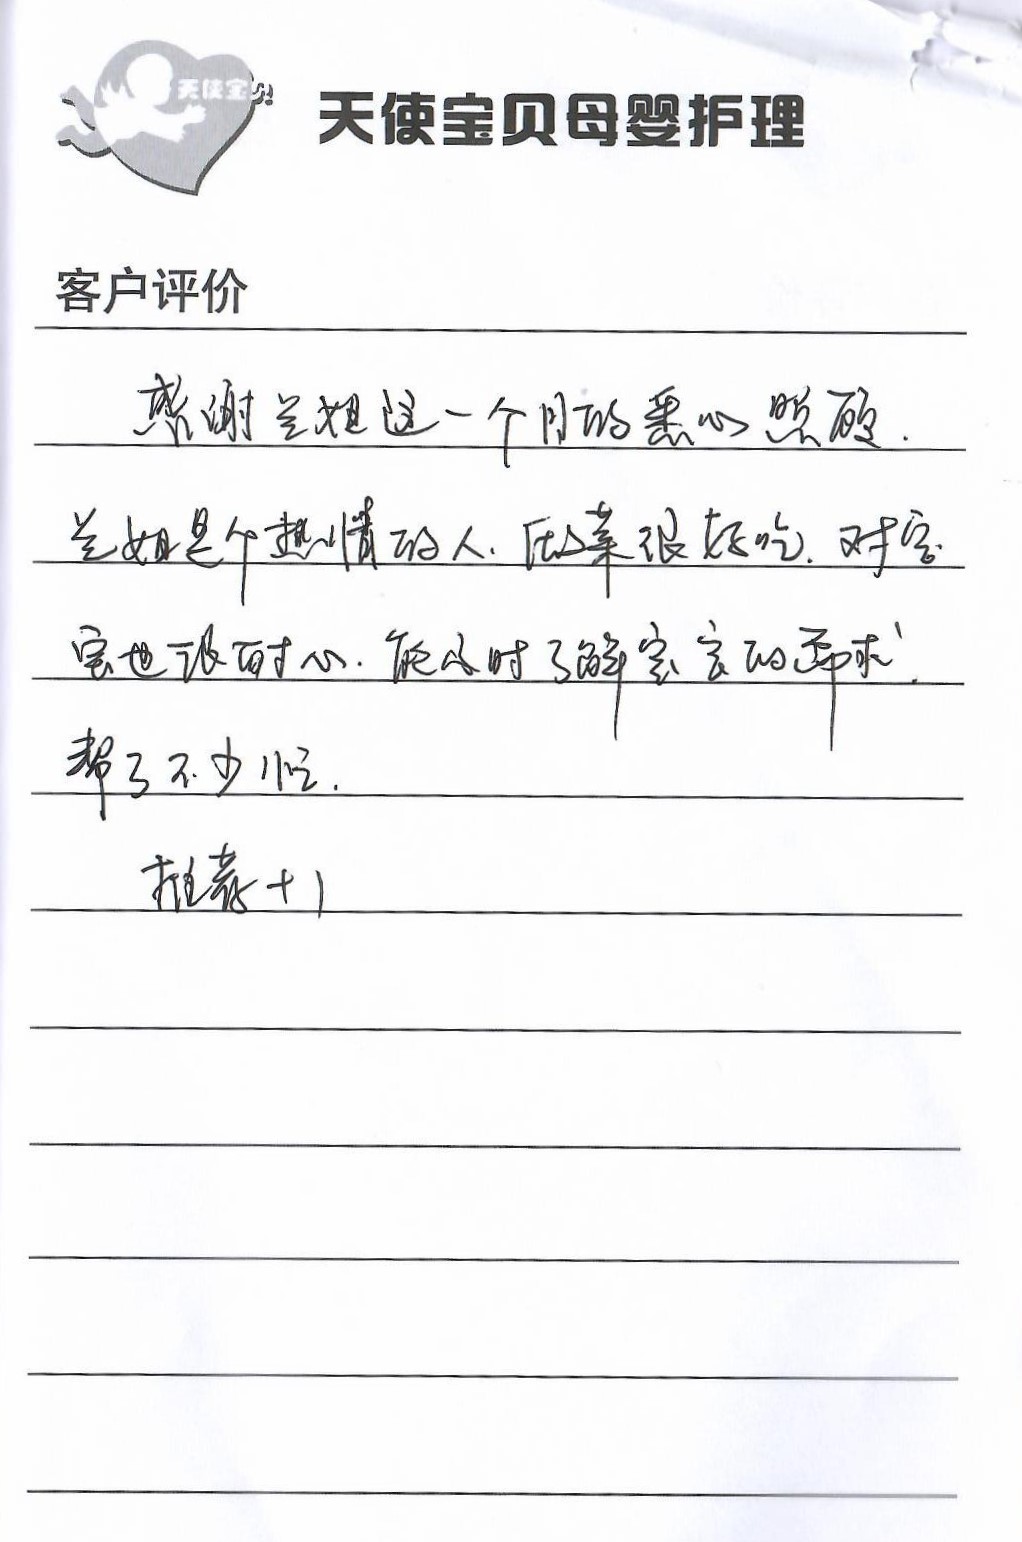 天使宝贝
天使宝贝母婴护理
客户评价
感谢兰姐这一个月的悉心照顾.
兰姐是个热情的人.做菜很好吃.对宝
宝也很耐心.能及时了解宝宝的需求.
帮了不少忙.
推荐+1